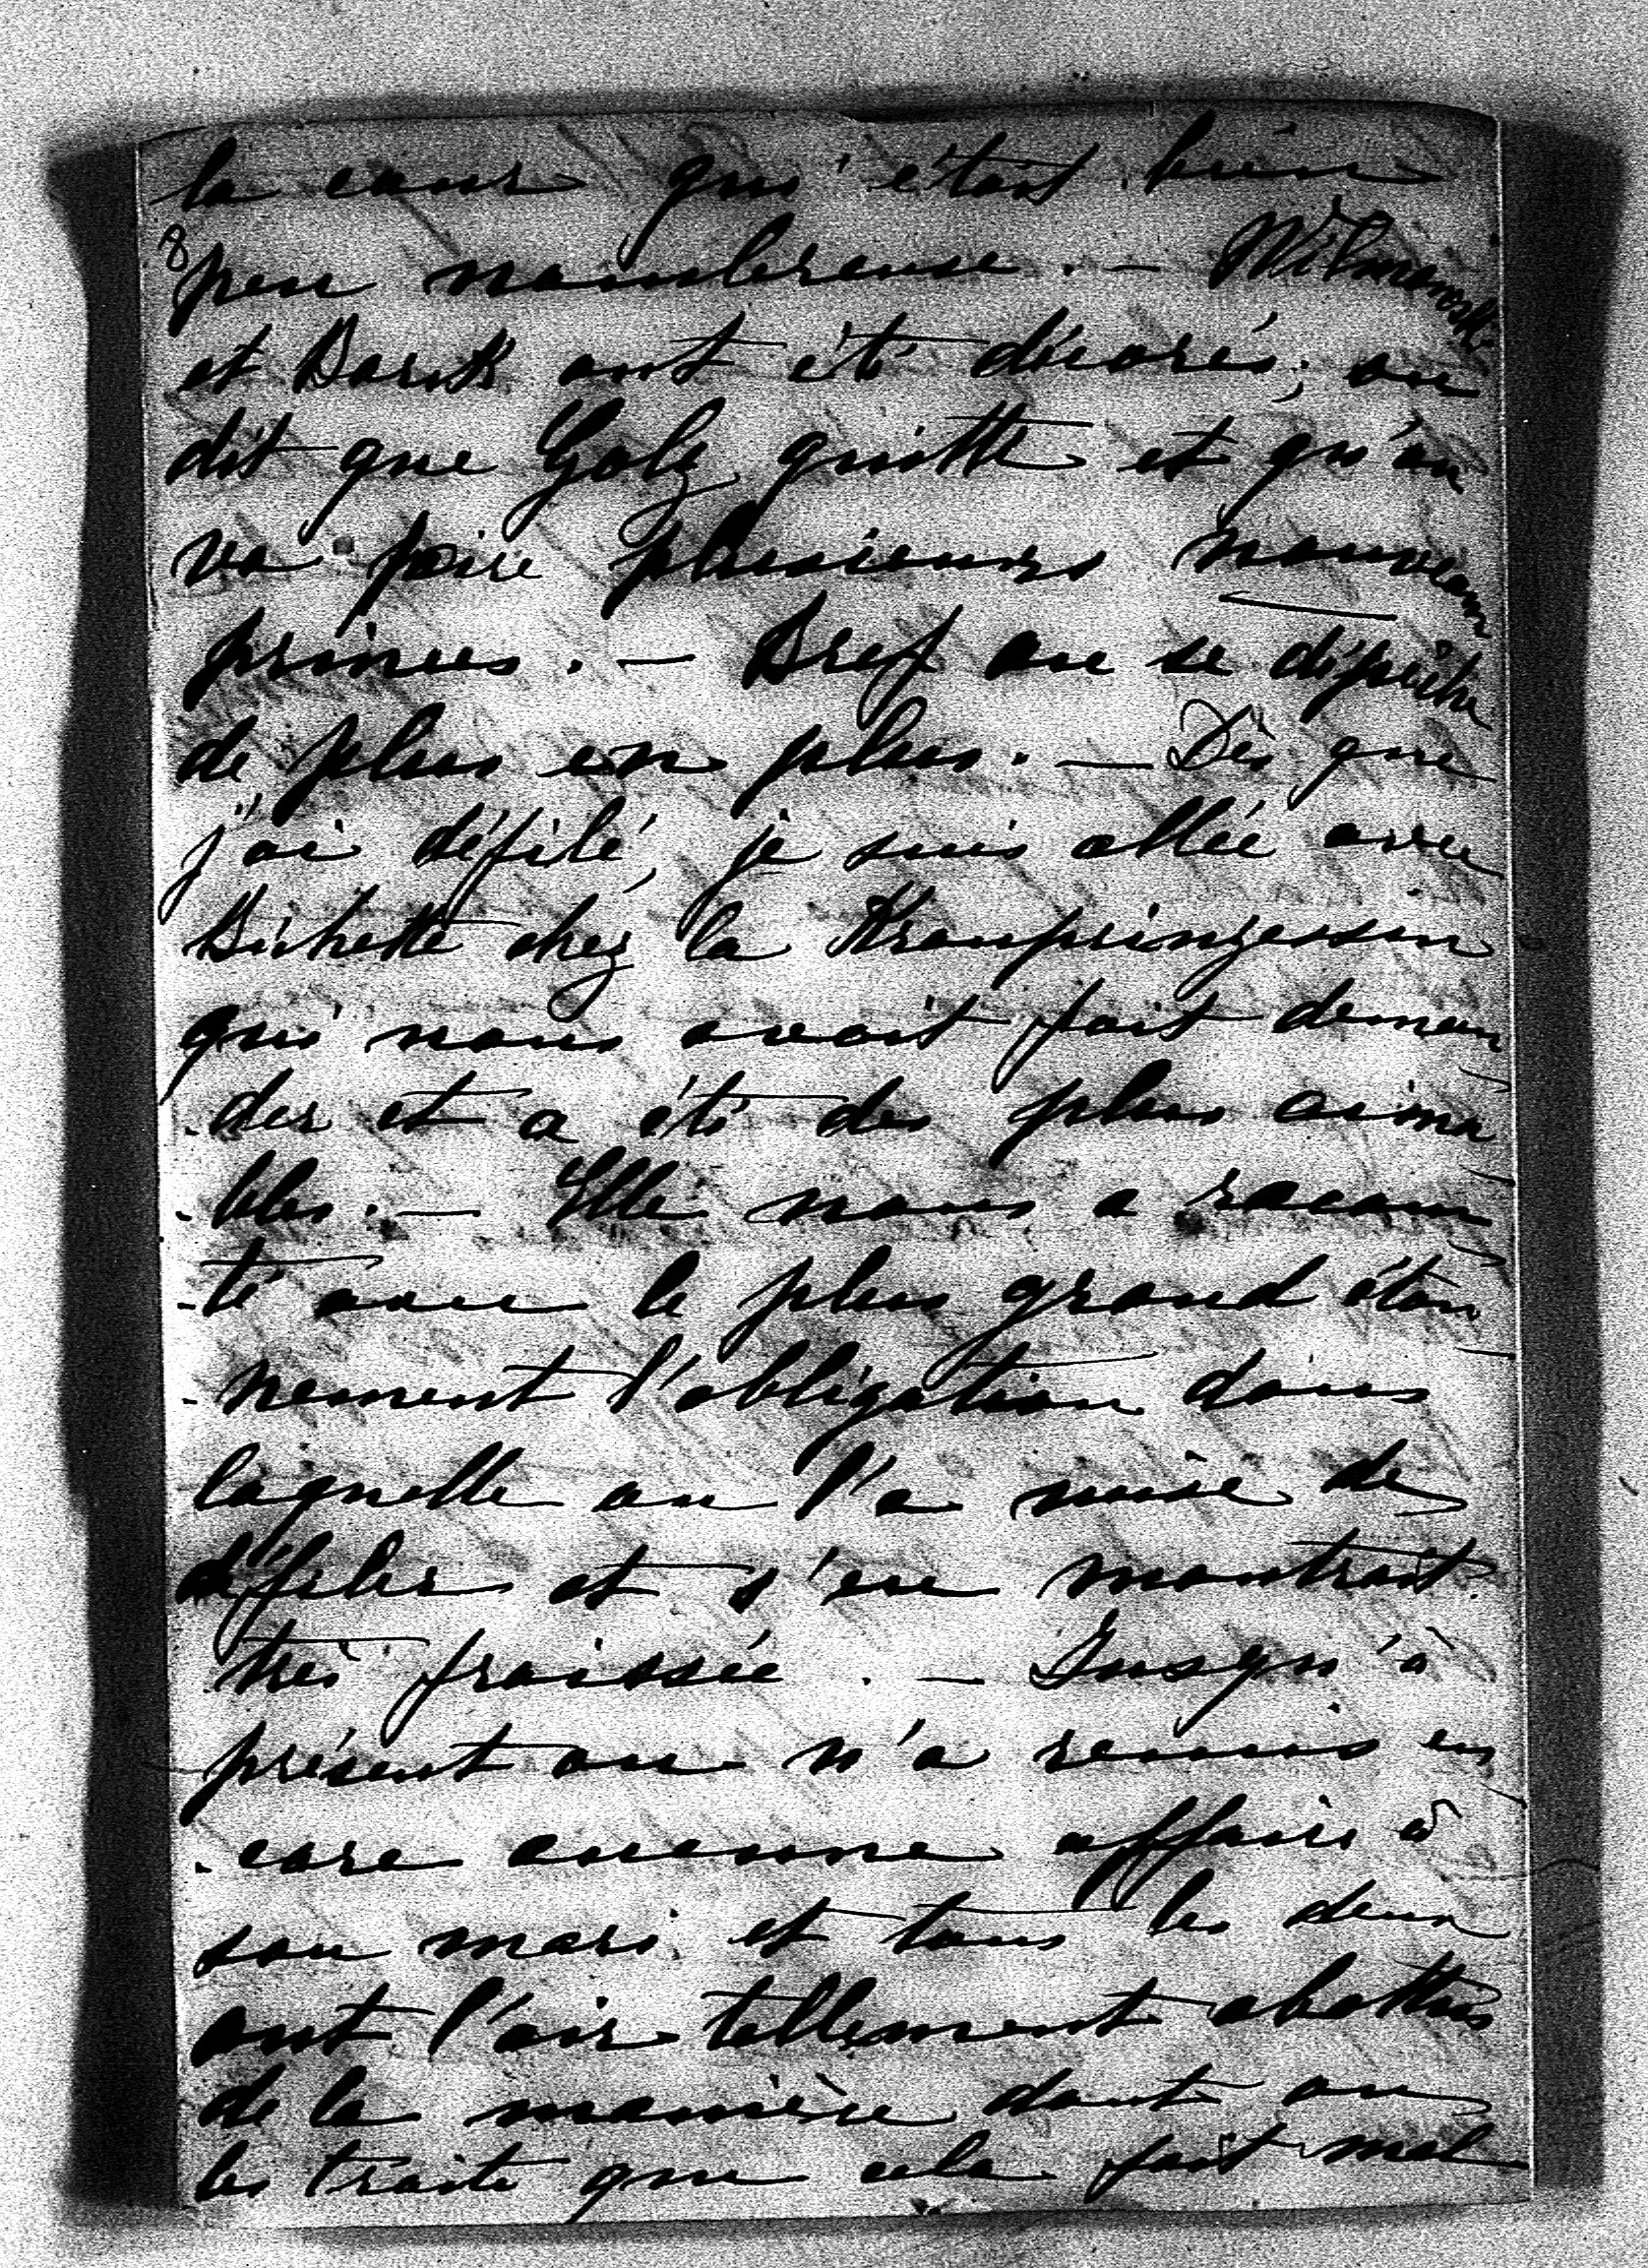 la cour qui était bien
8
peu nombreuse. — Wilmowski
et Bork ont été décorés; on
dit que Golz quitte et qu'on
va faire plusieurs nouveaux
princes. — Bref on se dépêche
de plus en plus. — Dès que
j'ai défilé, je suis allée avec
Bichette chez la Kronprinzessin
qui nous avait fait deman
-der et a été des plus aima
-bles. — Elle nous a racon
-té avec le plus grand éton
-nement l'obligation dans
laquelle on l'a mise de
défiler et s'en montrait
très froissée. — Jusqu'à
présent on n'a remis en
-core aucune affaire à
son mari et tous les deux
ont l'air tellement abattus
de la manière dont on
les traite que cela fait mal